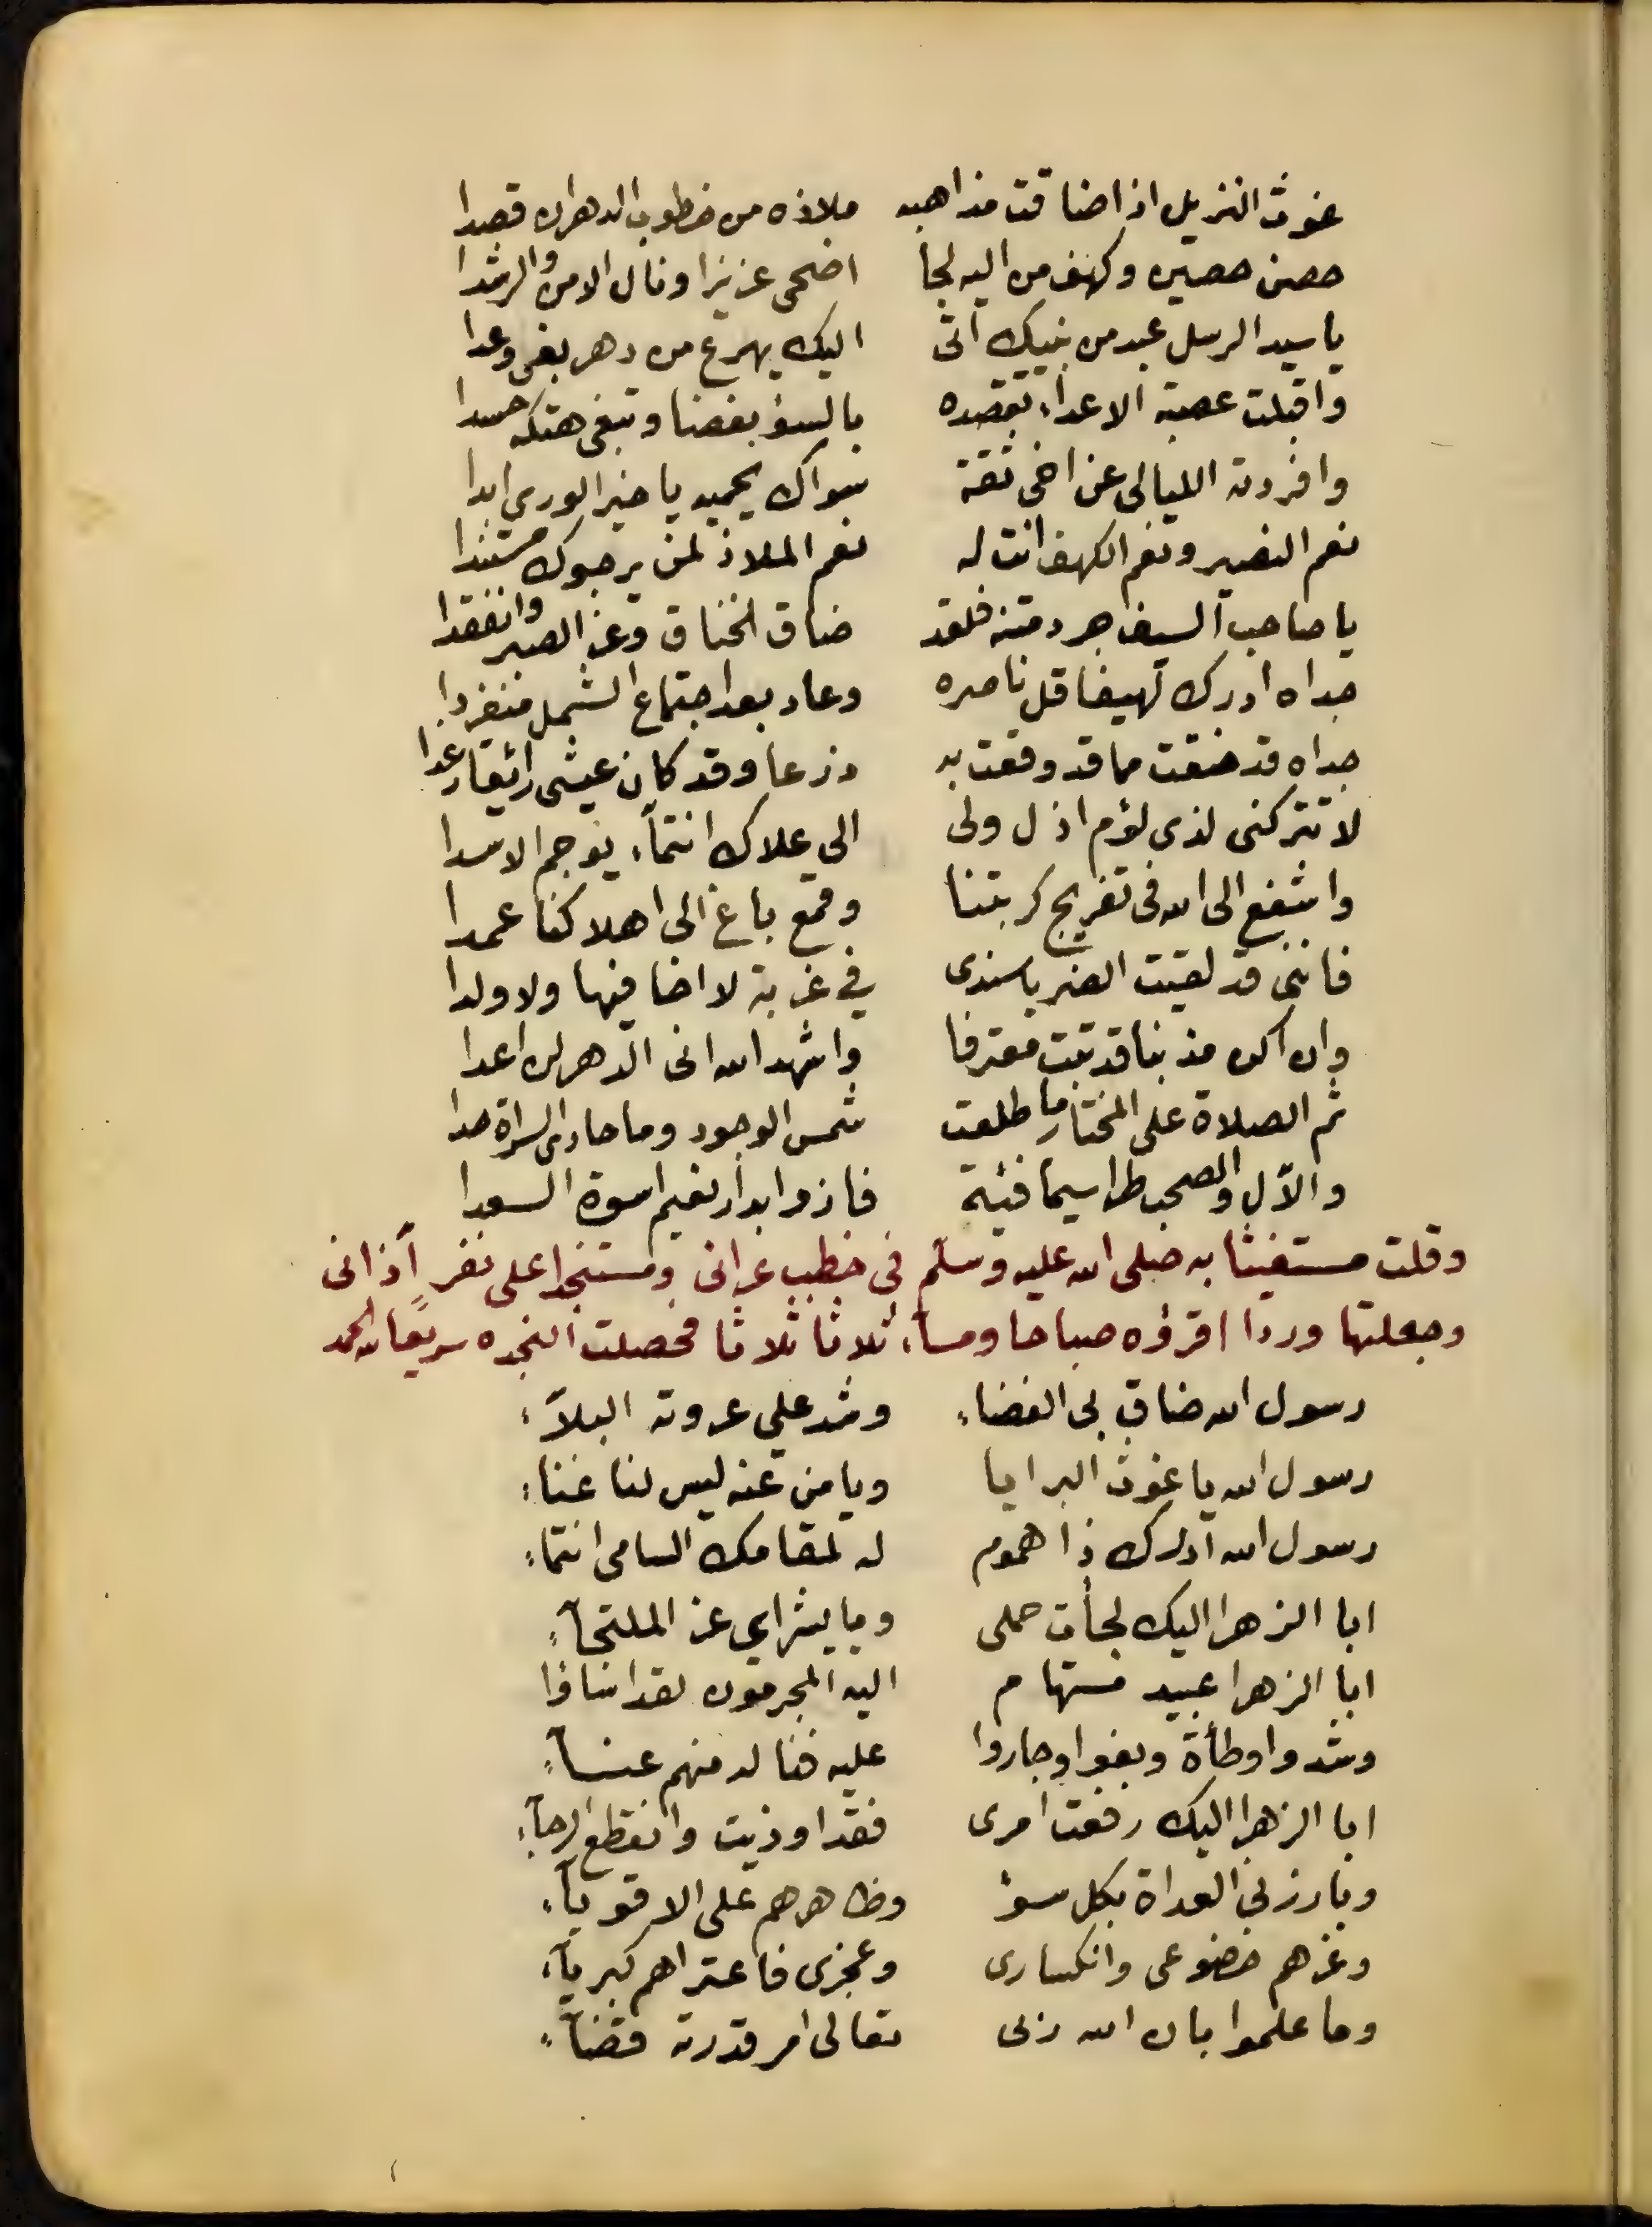 غوث النزيل اذا ضاقت مذاهبه ملاذه من خطوب الدهران قصدا
حصن حصين وكهف من اليه لجا اضحى عزيزا ونال الامن والرشدا
يا سيد الرسل عبد من بنيك اتى اليك يهرع من دهر بغى وعدا
واقبلت عصبة الاعداء تقصده بالسؤ بغضا وتبغى هتكه حسدا
وافردته الليالى عن اخى ثقة سواك يحميه يا خير الورى ابدا
نعم النصير ونعم الكهف انت له نعم الملاذ لمن يرجوك مستندا
يا صاحب السيف جرد متنه فلقد ضاق الخناق وعز الصبر وانفقدا
جداه ادرك لهيفا قل ناصره وعاد بعد اجتماع الشمل منفردا
جداه قد ضقت مما قد وقعت به ذرعا وقد كان عيشى رائقا رغدا
لا تتركنى لذى لؤم اذل ولى الى علاك انتماء يوجم الاسدا
واشفع الى الله فى تفريج كربتنا وقمع باغ الى اهلاكنا عمدا
فاننى قد لقيت الضر يا سندى في غربة لا اخا فيها ولا ولدا
وان اكن مذنبا قد تبت معترفا واشهد الله انى الدهر لن اعدا
ثم الصلاة على المختار ما طلعت شمس الوجود وما حادى السراة حدا
والآل والصحب طرا سيما فئة فازوا بدار نعيم اسوة السعدا
وقلت مستغيثا به صلى الله عليه وسلم في خطب عرانى ومستنجدا على نفر آذانى
وجعلتها وردا اقرؤه صباحا ومساء ثلاثا ثلاثا فحصلت النجده سريعا لله الحمد
رسول الله ضاق بى الفضاء وشد علي عروته البلآء
رسول الله يا غوث البرايا ويا من عنه ليس لنا غناء
رسول الله ادرك ذا هموم له لمقامك السامى انتماء
ابا الزهرا اليك لجأت حملى وبابشراي عز الملتجآء
ابا الزهرا عبيد مستهام اليه المجرمون لقد اساؤا
وشدوا وطأة وبغوا وجاروا عليه فناله منهم عنآء
ابا الزهرا اليك رفعت امرى فقد اوذيت وانقطع الرجآء
وبارزني العداة بكل سؤ وظاهرهم على الاقويآء
وغرهم خضوعى وانكسارى وعجزى فاعتراهم كبريآء
وما علموا بان الله ربى تعالى امر قدرته قضآء